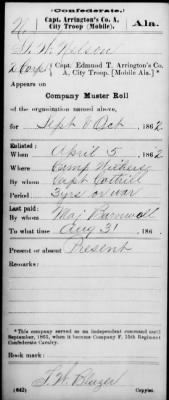 Confederate.
Capt. Arrington's Co. A,
City Troop (Mobile).
Ala.
W. Nelson
2 Corp, Capt. Edmund T. Arrington's Co.
A, City Troop. [Mobile Ala.]*
Appears on
Company Muster Roll
of the organization named above,
for Sept & Oct, 1862
Enlisted:
When April 5, 1862
Where Camp
By whom Capt Cottrill
Period 3 yrs or war
Last paid:
By whom Maj Barnwell
To what time Aug 31, 186
Present or absent Present
Remarks:
*This company served as an independent command until
September, 1863, when it became Company F, 15th Regiment
Confederate Cavalry.
Book mark:
(642)
Copyist.